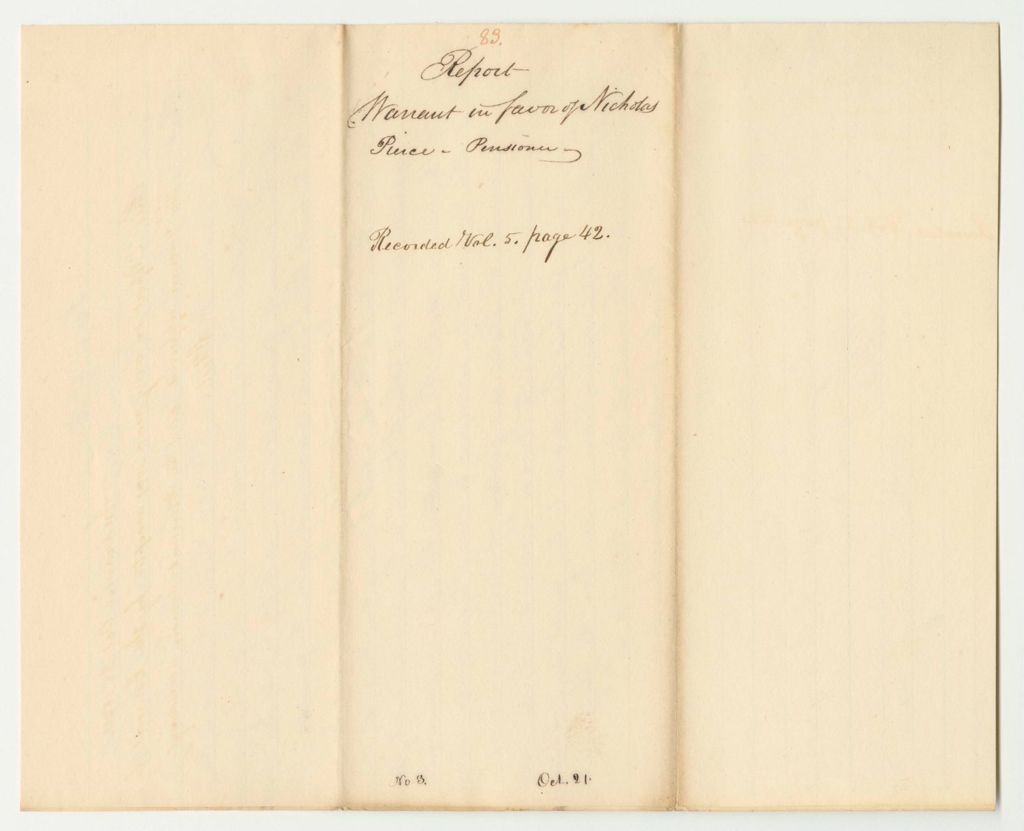 83.
Report
Warrant in favor of Nicholas
Pierce - Pensioner -
Recorded Vol. 5. page 42.
No 3. Oct. 21.